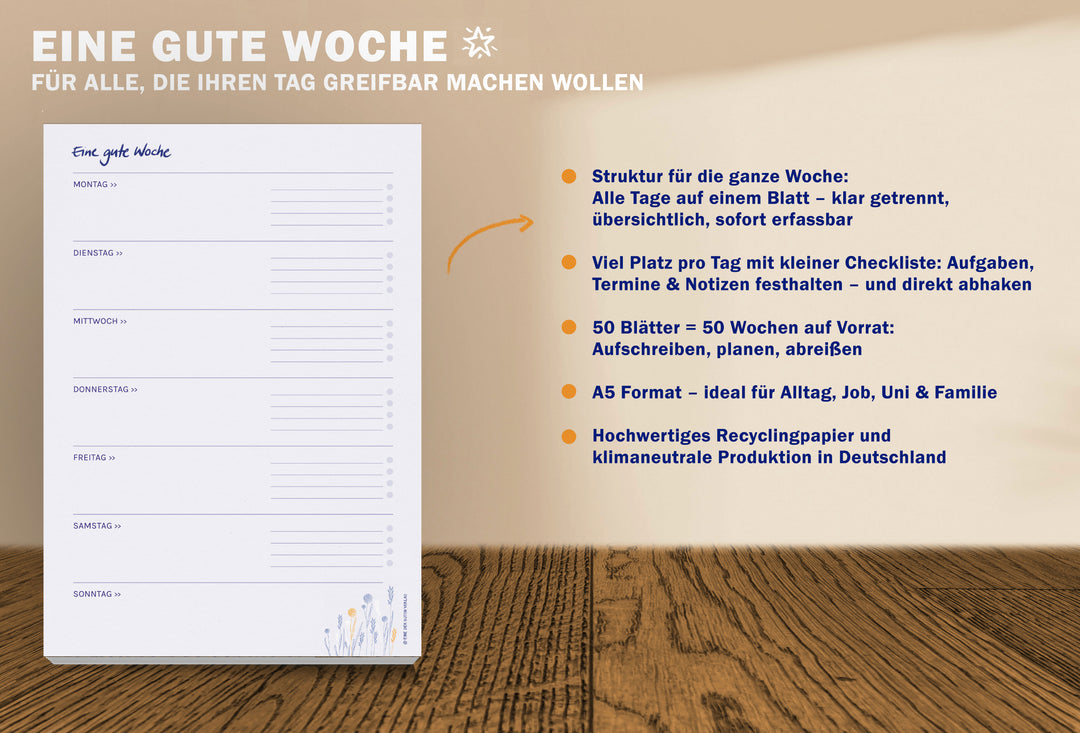 EINE GUTE WOCHE
FÜR ALLE, DIE IHREN TAG GREIFBAR MACHEN WOLLEN
Eine gute Woche
MONTAG >>
DIENSTAG >>
MITTWOCH >>
DONNERSTAG >>
FREITAG >>
SAMSTAG >>
SONNTAG >>
Struktur für die ganze Woche:
Alle Tage auf einem Blatt – klar getrennt,
übersichtlich, sofort erfassbar
Viel Platz pro Tag mit kleiner Checkliste: Aufgaben,
Termine & Notizen festhalten – und direkt abhaken
50 Blätter = 50 Wochen auf Vorrat:
Aufschreiben, planen, abreißen
A5 Format – ideal für Alltag, Job, Uni & Familie
Hochwertiges Recyclingpapier und
klimaneutrale Produktion in Deutschland